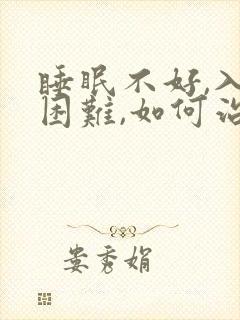 睡眠不好,入
困難,如何治
娄秀娟